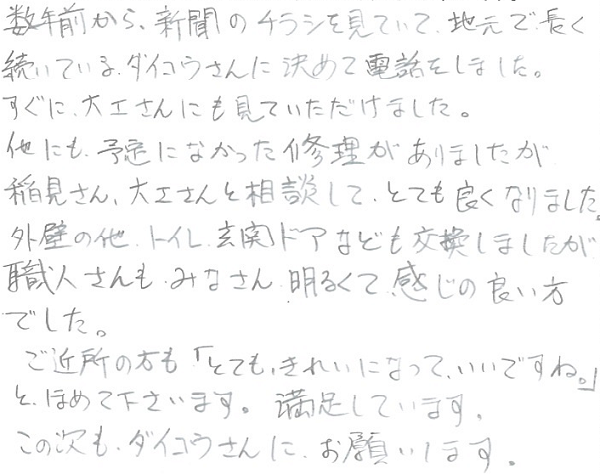 数年前から、新聞のチラシを見ていて、地元で長く
続いている、ダイコウさんに決めて電話をしました。
すぐに、大工さんにも見ていただけました。
他にも、予定になかった修理がありましたが
稲見さん、大工さんと相談して、とても良くなりました。
外壁の他、トイレ、玄関ドアなども交換しましたが
職人さんも、みなさん、明るくて感じの良い方
でした。
ご近所の方も「とても、きれいになって、いいですね。」
と、ほめて下さいます。満足しています。
この次も、ダイコウさんに、お願いします。